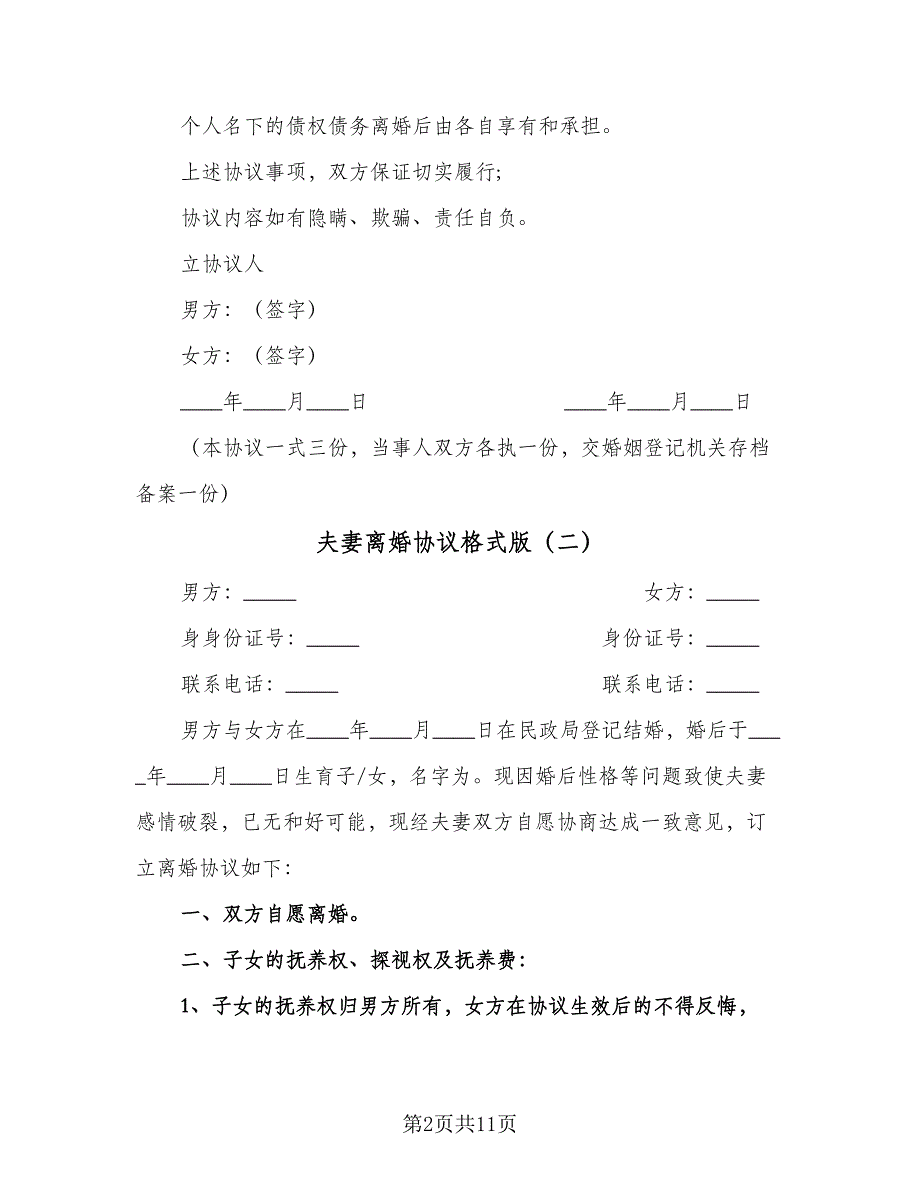 个人名下的债权债务离婚后由各自享有和承担。
上述协议事项，双方保证切实履行;
协议内容如有隐瞒、欺骗、责任自负。
立协议人
男方：（签字）
女方：（签字）
____年____月____日 ____年____月____日
（本协议一式三份，当事人双方各执一份，交婚姻登记机关存档
备案一份）
夫妻离婚协议格式版（二）
男方：_____ 女方：_____
身身份证号：_____ 身份证号：_____
联系电话：_____ 联系电话：_____
男方与女方在____年____月____日在民政局登记结婚，婚后于___
_年____月____日生育子/女，名字为。现因婚后性格等问题致使夫妻
感情破裂，已无和好可能，现经夫妻双方自愿协商达成一致意见，订
立离婚协议如下：
一、双方自愿离婚。
二、子女的抚养权、探视权及抚养费：
1、子女的抚养权归男方所有，女方在协议生效后的不得反悔，
第2页共11页